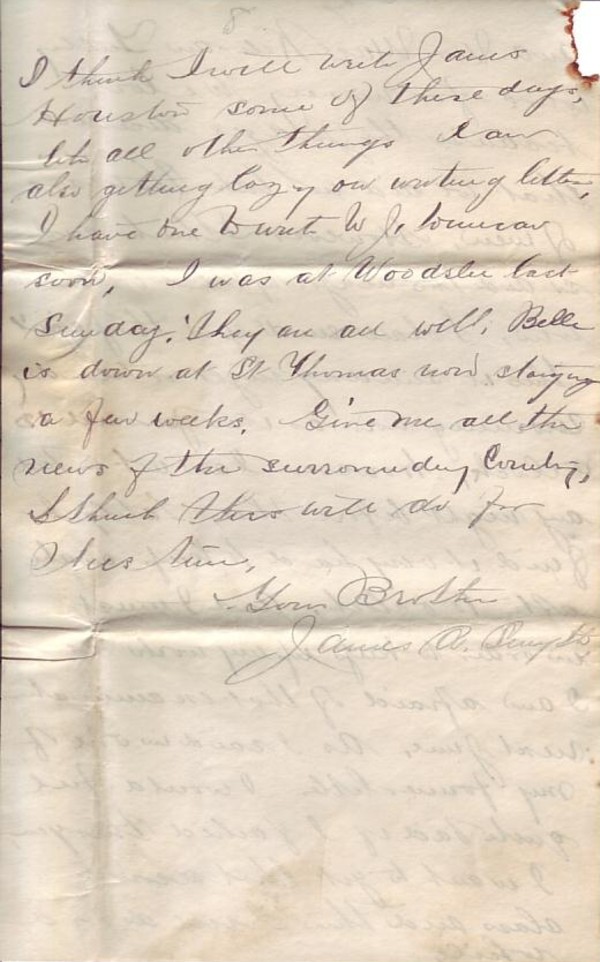 8
I think I will write James
Houston some of these days,
like all other things I am
also getting lazy on writing letters,
I have one to write W J,
soon, I was at Woodslee last
Sunday. They are all well, Belle
is down at St Thomas now staying
a few weeks. Give me all the
news of the surrounding Country,
I think this will do for
this time,
Your Brother
James A.